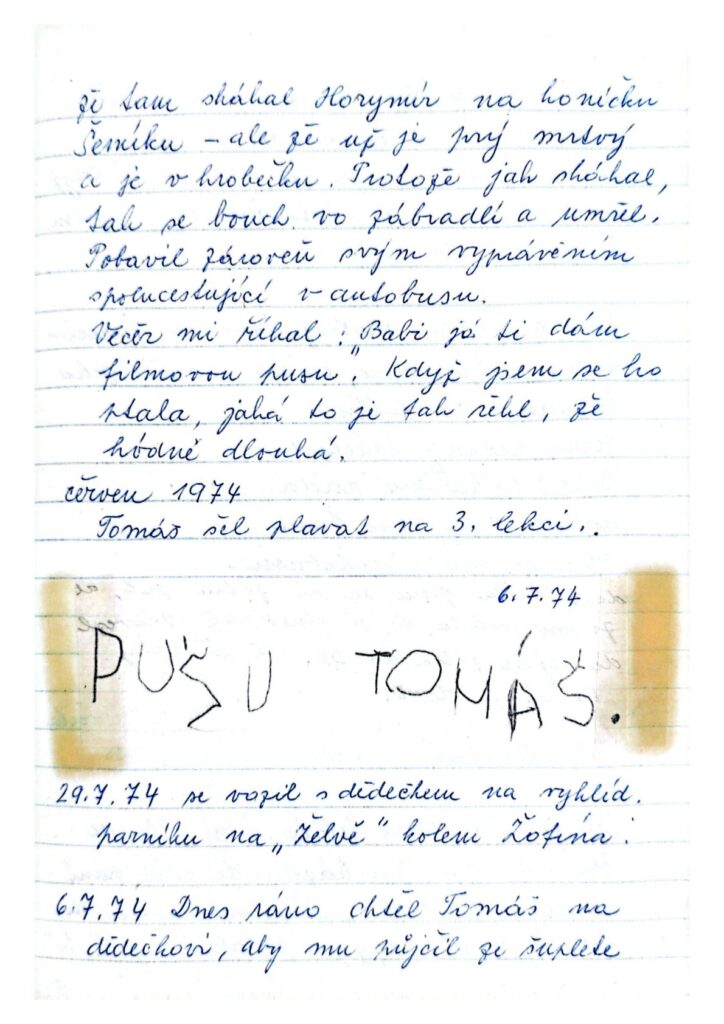 že tam skákal Horymír na koníčku
Šemíku – ale že už je prý mrtvý
a je v hrobečku. Protože jak skákal,
tak se bouch vo zábradlí a umřel.
Pobavil zároveň svým vyprávěním
spolucestující v autobusu.
Večer mi říkal: „Babi já ti dám
filmovou pusu". Když jsem se ho
ptala, jaká to je tak řekl, že
hódně dlouhá.
červen 1974
Tomáš šel plavat na 3. lekci..
6.7.74
PUŠU TOMÁŠ.
29.7.74 se vozil s dědečkem na vyhlíd.
parníku na „Želvě" kolem Žofína.
6.7.74 Dnes ráno chtěl Tomáš na
dědečkovi, aby mu půjčil ze šuplete